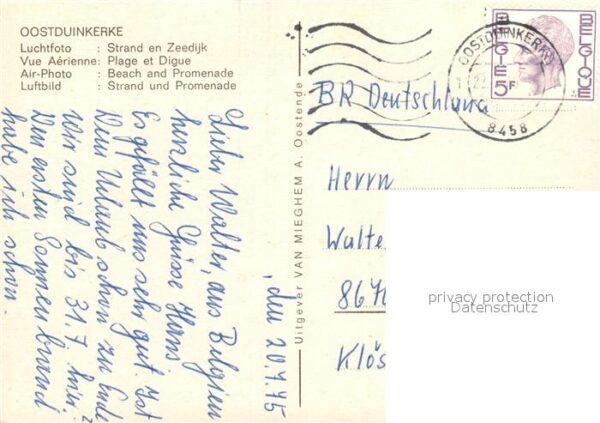 OOSTDUINKERKE
Luchtfoto : Strand en Zeedijk
Vue Aérienne: Plage et Digue
Air-Photo : Beach and Promenade
Luftbild : Strand und Promenade
, den 20.7.75
Lieber Walter, aus Belgien
herzliche Grüsse Hans.
Es gefällt uns sehr gut. Ist
Dein Urlaub schon zu Ende?
Wir sind bis 31.7 hier
Den ersten Sonnenbrand
habe ich schon.
Uitgever VAN MIEGHEM A. Oostende
OOSTDUINKERKE
8458
BELGIE BELGIQUE
5F
BR Deutschland
Herrn
Walte
867
Klös
privacy protection
Datenschutz